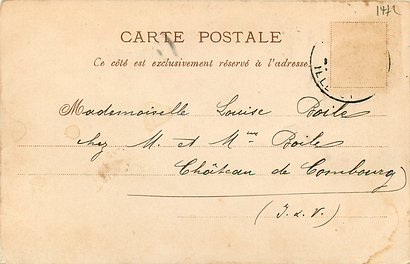 1912
CARTE POSTALE
Ce côté est exclusivement réservé à l'adresse.
ILLE
Mademoiselle Louise Boile
chez M. et Mme Boile
Château de Combourg
(I. & V.)